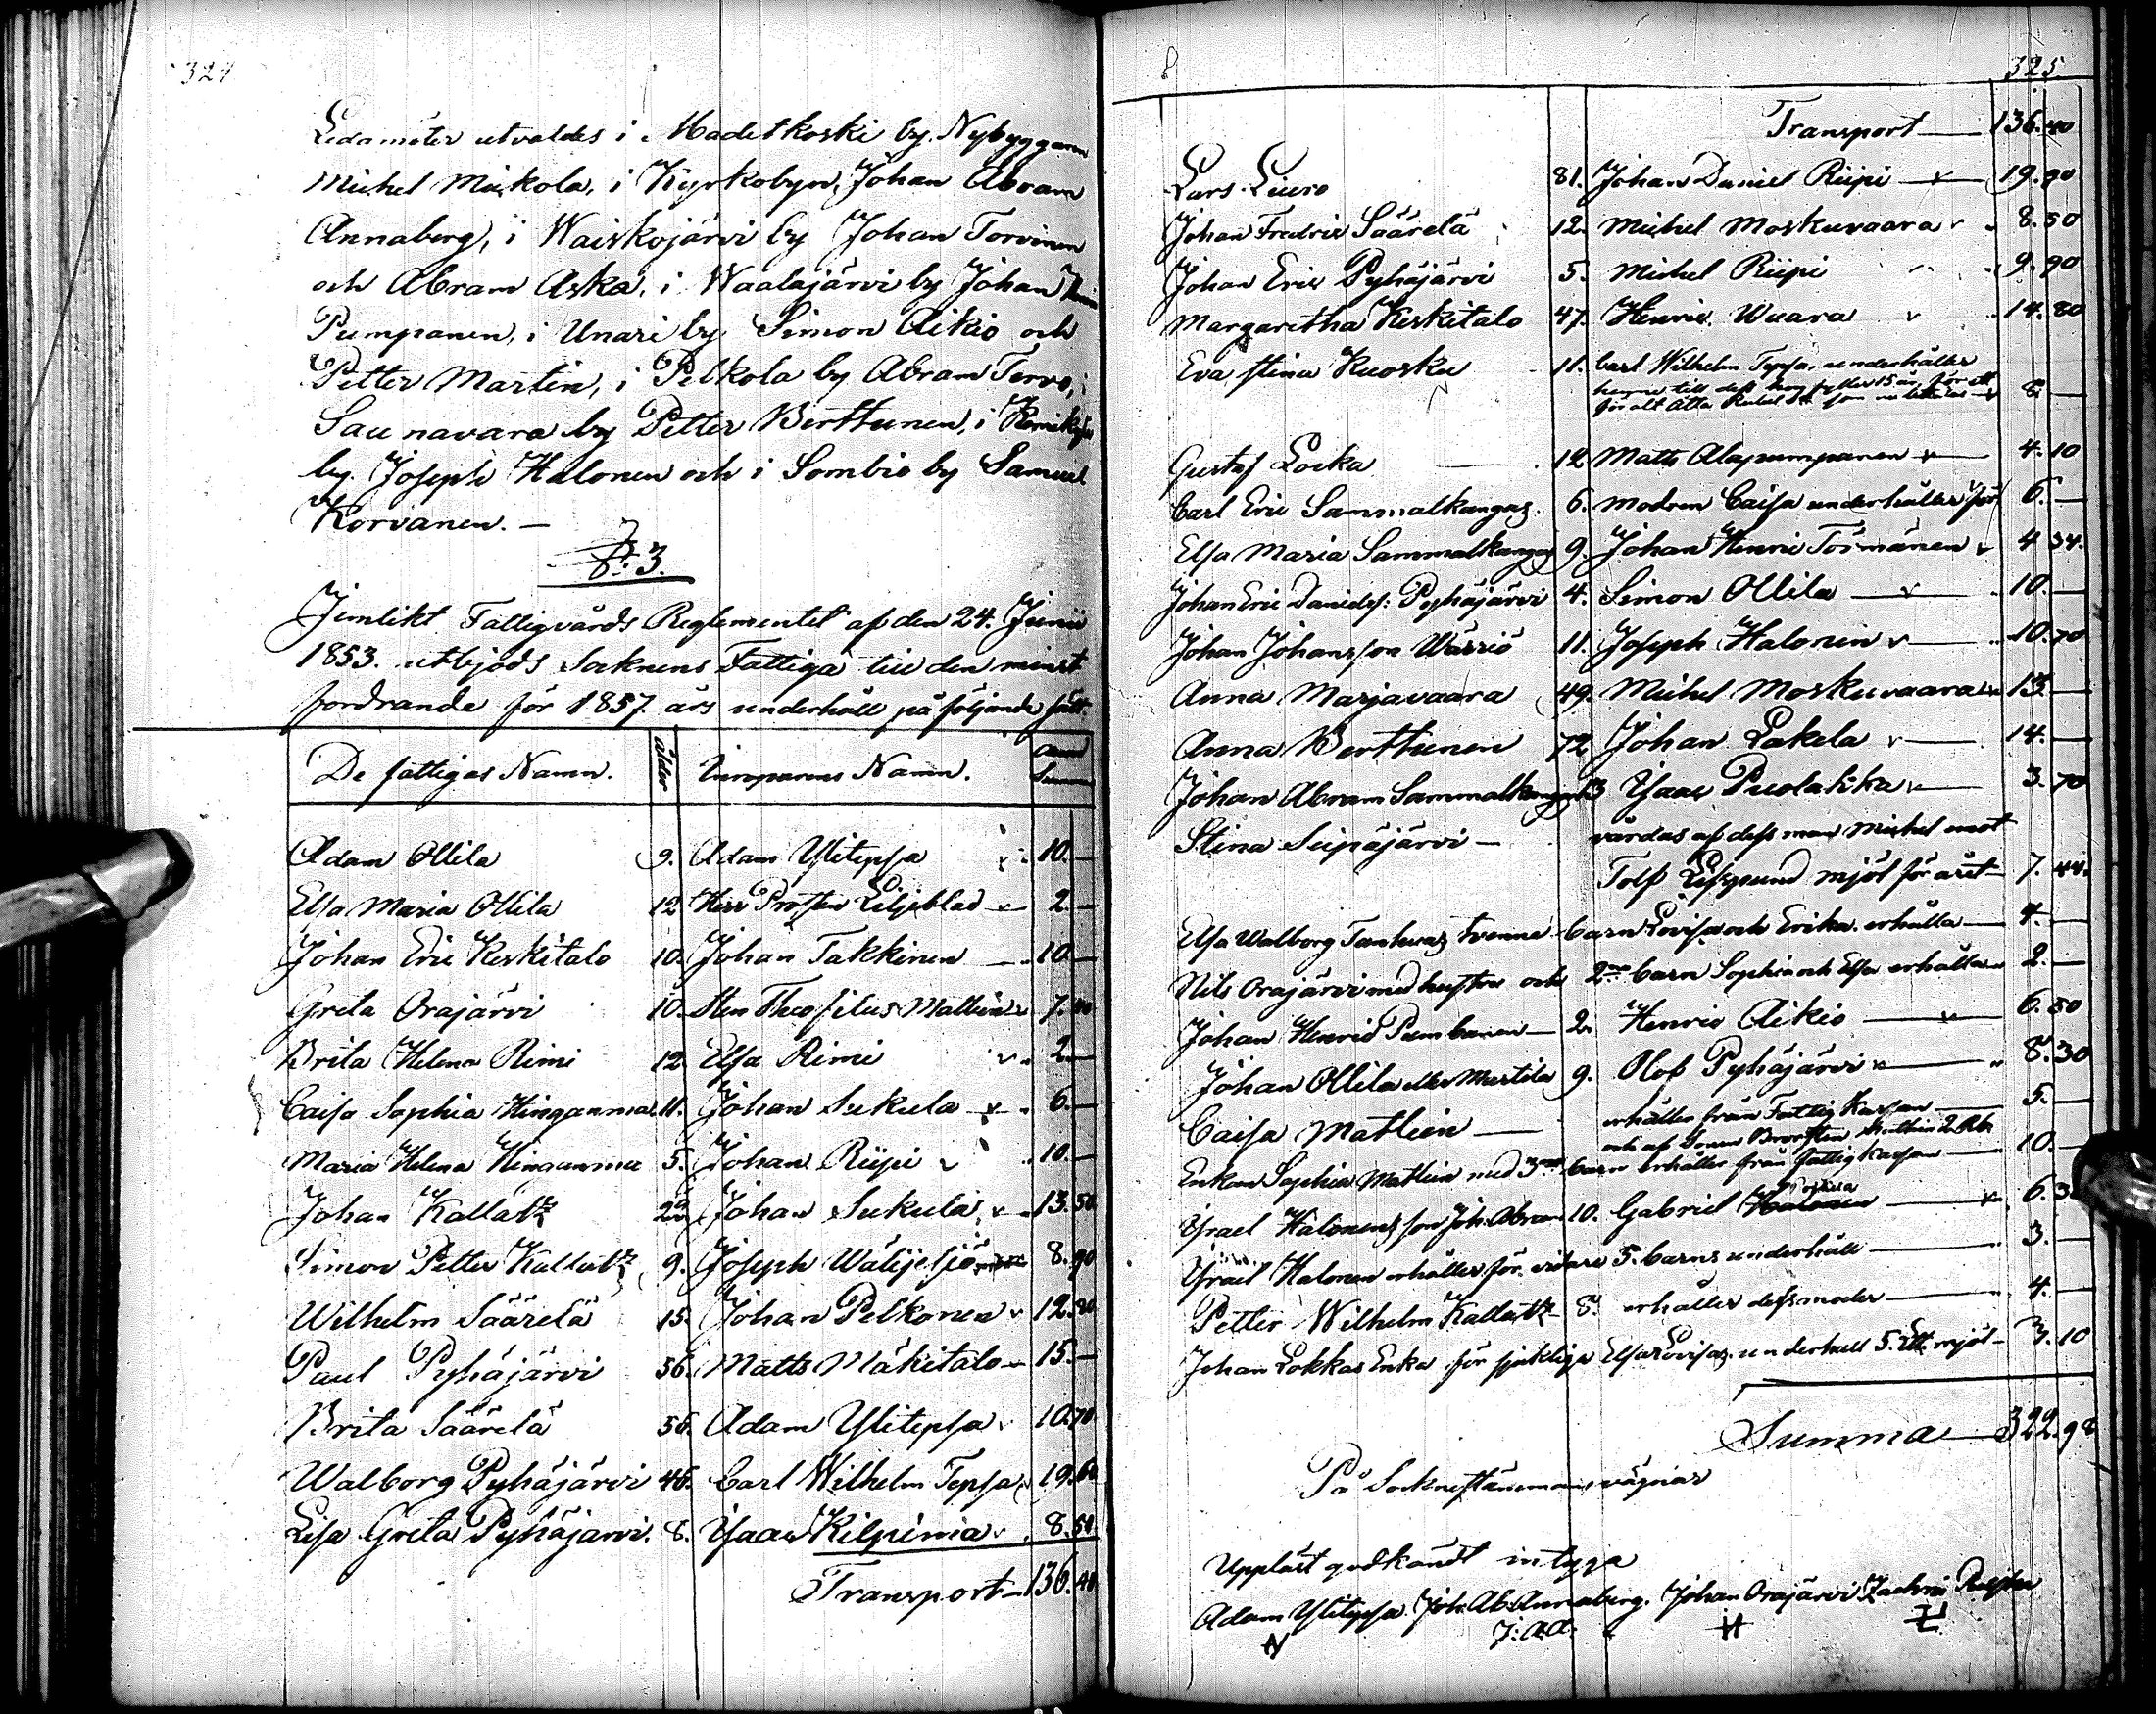 324
Ledamöter utvaldes i Madetkoski by Nybyggaren
Michel Mickola, i Kyrkobyn, Johan Abram
Annaberg, i Waiskojärvi by Johan Torvinen
och Abram Aska, i Waalajärvi by Johan
Pumpanen, i Unari by Simon Aikio och
Petter Martin, i Pelkola by Abram Tervo, i
Saunavara by Petter Kerttunen, i
by Joseph Halonen och i Sombio by Samuel
Korvanen. —
§: 3.
Jemlikt Fattigvårds Reglementet af den 24. Junii
1853. utbjöds Socknens Fattiga till den minst
fordrande för 1857. års underhåll på följande sätt.
De fattigas Namn. ålder Inroparens Namn. Summa
Adam Ollila 9. Adam Ylitepsa 10. —
Elsa Maria Ollila 12 Herr Prosten Liljeblad 2. —
Johan Eric Keskitalo 10. Johan Takkinen 10. —
Greta Orajärvi 10. Sten Theofilus Mathlein 7.
Brita Helena Rimi 12. Elsa Rimi 2. —
Caisa Sophia Hinganmaa 11. Johan Sukula 6. —
Maria Helena Hinganmaa 5. Johan Riipi 10. —
Johan Kallatz 22 Johan Sukula 13. 50
Simon Petter Kallatz 9. Joseph Wälijesjö 8. 90
Wilhelm Säärelä 15. Johan Pelkonen 12. 80
Paul Pyhäjärvi 56. Matts Mäkitalo 15. —
Brita Säärelä 56. Adam Ylitepsa 10. 70
Walborg Pyhäjärvi 46. Carl Wilhelm Tepsa 19. 60
Lisa Greta Pyhäjärvi. 8. Isaac Kilpimia 8. 50.
Transport — 136. 40
325.
Transport — 136. 40
Lars Luiro 81. Johan Daniel Riipi 19. 90
Johan Fredric Säärelä 12. Michel Moskuvaara 8. 50
Johan Eric Pyhäjärvi 5. Michel Riipi 9. 90
Margaretha Keskitalo 47. Henric Waara 14. 80
Eva Stina Kuosku 11. Carl Wilhelm Tepsa, underhåller
henne till dess hon fyller 15 år för ett
för allt Åtta Rubel 8. —
Gustaf Locka 12 Matts Alapumpanen 4. 10
Carl Eric Sammalkangas 6. Modren Caisa underhåller för 6. —
Elsa Maria Sammalkangas 9. Johan Henric Törmänen 4 34.
Johan Eric Danielss: Pyhäjärvi 4. Simon Ollila 10. —
Johan Johansson Wärriö 11. Joseph Halonen 10. 70
Anna Marjavaara 49. Michel Moskuvaara 13. —
Anna Kerttunen 72 Johan Lakela 14. —
Johan Abram Sammalkangas 13 Isaac Puolakka 3. 70
Stina Seipäjärvi — vårdas af dess man Michel mot
Tolf Lispund mjöl för året 7. 44.
Elsa Walborg Tanhuas tvenne barn Lovisa och Erika erhålla 4. —
Nils Orajärvi med hustru och 2ne barn Sophia och Elsa erhålla 2. —
Johan Henric Pumbanen — 2. Henric Aikio 6. 50
Johan Ollila eller Martila 9. Olof Pyhäjärvi 8. 30
Caisa Mathlein — erhåller från Fattig Kassan 5. —
och af Sonen Mathlein 2 Rb
Enkan Sophia Mathlein med 3ne barn erhåller från fattig kassan 10. —
Israel Halonens son Joh: Abram 10. Gabriel 6.
Israel Halonen erhåller för vidare 5. barns underhåll 3. —
Petter Wilhelm Kallatz 8. erhåller dess moder 4. —
Johan Lokkas Enka för sjukliga Elsa Lovisas underhåll 5. mjöl 3. 10
Summa — 322. 98
På Sockenstämmans vägnar
Uppläst godkändt intyga
Adam Ylitepsa. Joh. Ab. Annaberg. Johan Orajärvi
J: A. A: